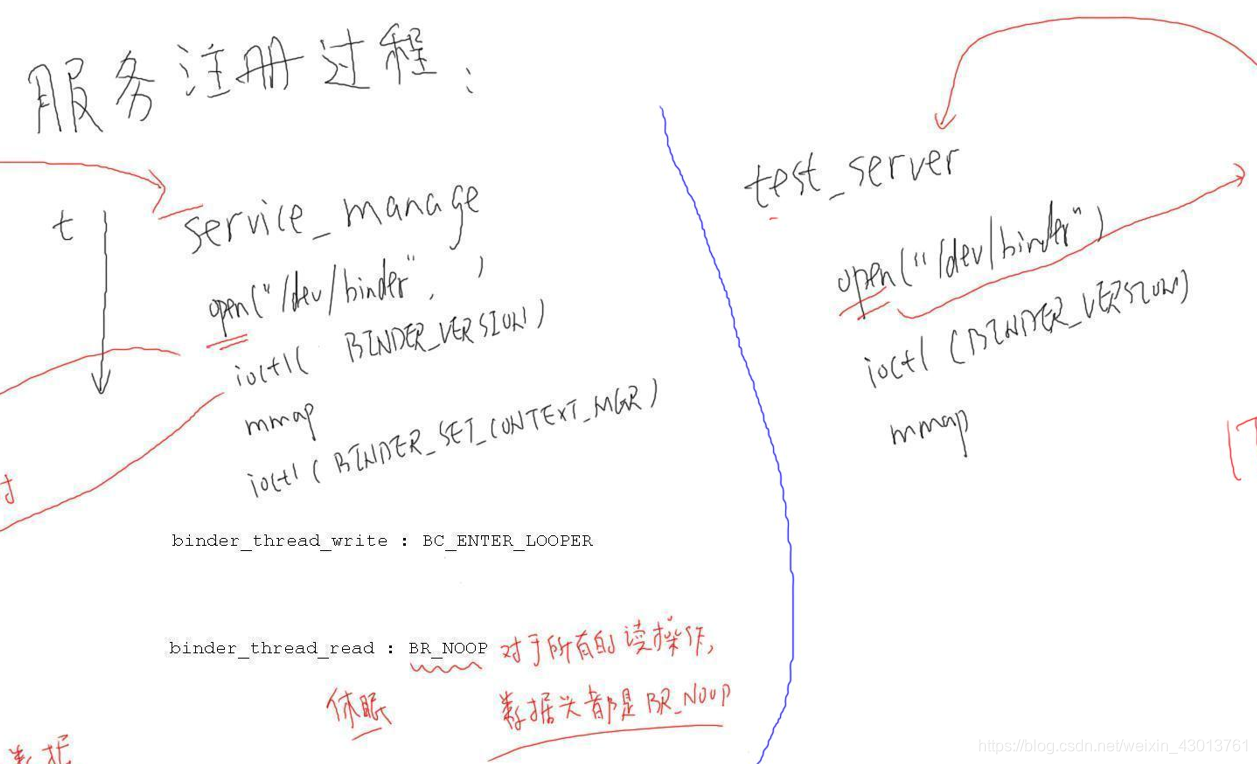 服务注册过程:
t
service_manage
open("/dev/binder", )
ioctl( BINDER_VERSION)
mmap
ioctl(BINDER_SET_CONTEXT_MGR)
binder_thread_write : BC_ENTER_LOOPER
binder_thread_read : BR_NOOP 对于所有的读操作,
数据头都是BR_NOOP
休眠
数据
test_server
open("/dev/binder")
ioctl(BINDER_VERSION)
mmap
https://blog.csdn.net/weixin_43013761